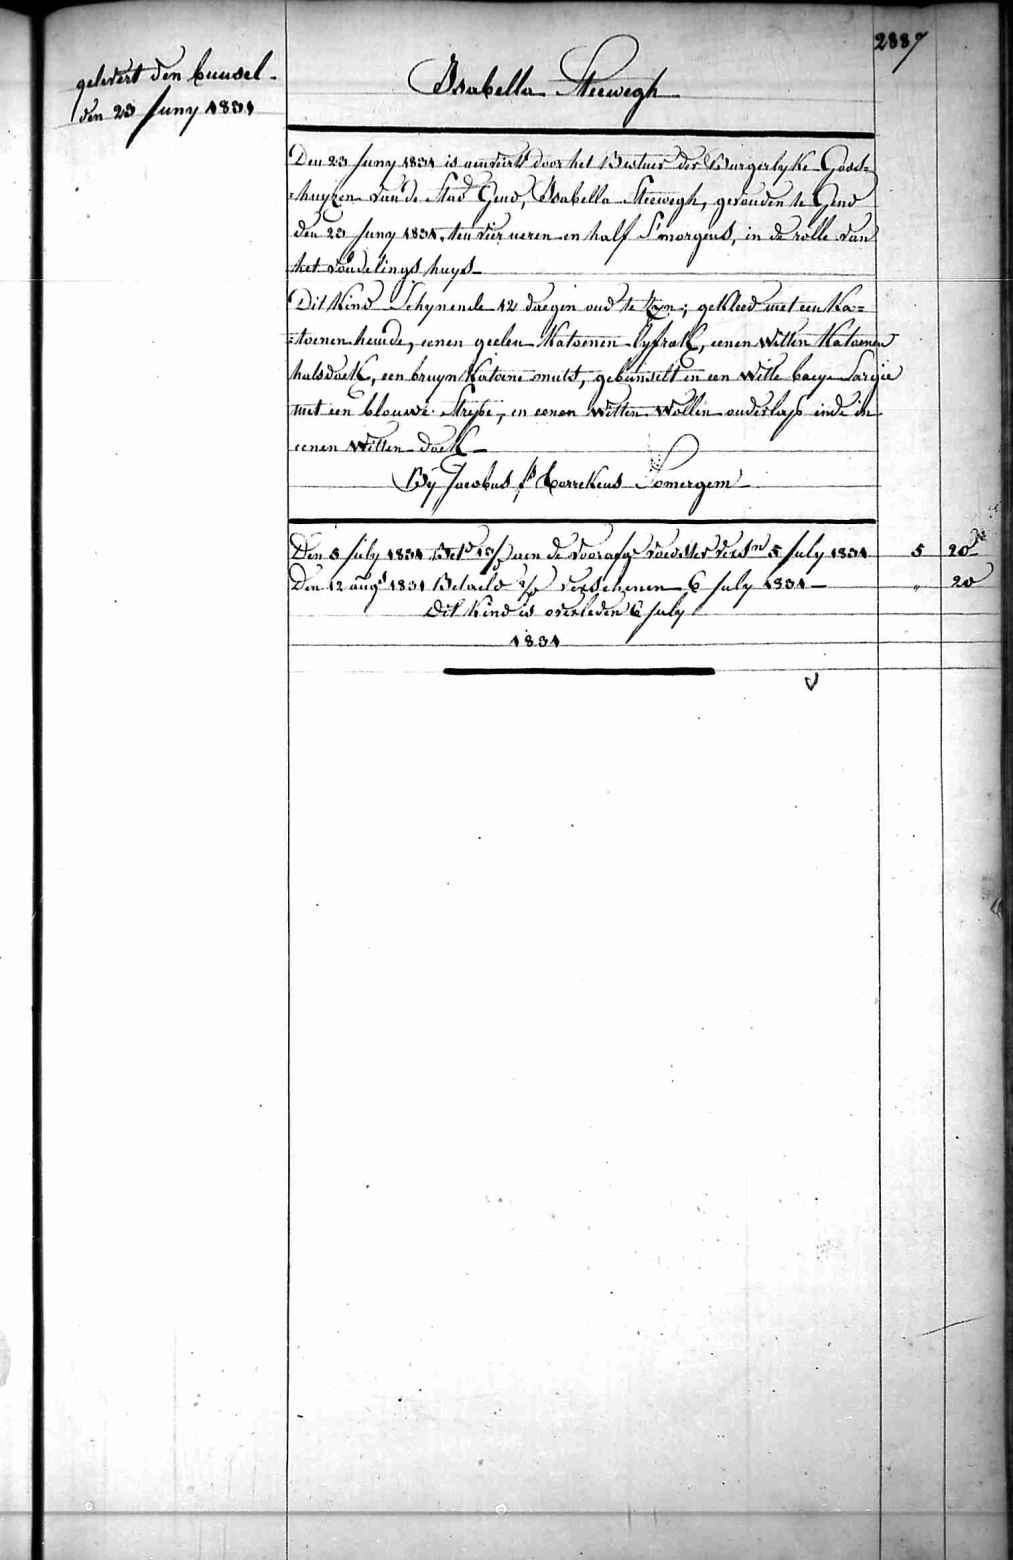 2887
gelevert den bunsel
den 23 Juny 1831
Isabella Steewegh
Den 23 Juny 1831 is aenveirt door het Bestier der Burgerlyke Gods=
=huyzen van de Stad Gend, Isabella Steewegh, gevonden te Gend
den 23 Juny 1831, ten vier ueren en half s'morgens, in de rolle van
het vondelings huys
Dit Kind Schynende 12 daegen oud te zyn; gekleed met een Ka=
=toenen hemde, eenen geelen Katoenen lyfrok, eenen Witten Katoenen
halsdoek, een bruyn Katoene muts, gebunselt in een Witte baeye Sargie
met een blouwe Strepe, en eenen Witten Wollen onderlap ende in
eenen Witten doek
By Jacobus Correkens Somergem
Den 8 July 1831 Bet.d aen de voorafg voedster versn 5 July 1831 5 20
Den 12 augs 1831 Betaeld verschenen 6 July 1831 " 20
Dit Kind is overleden 6 July
1831